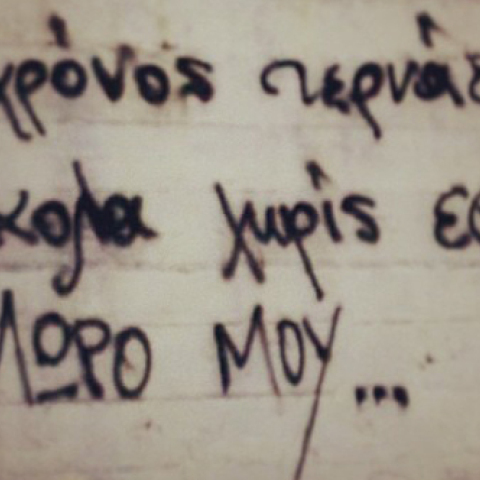 χρόνος περνάε
κολα χωρίς εσ
Μωρο ΜΟΥ...